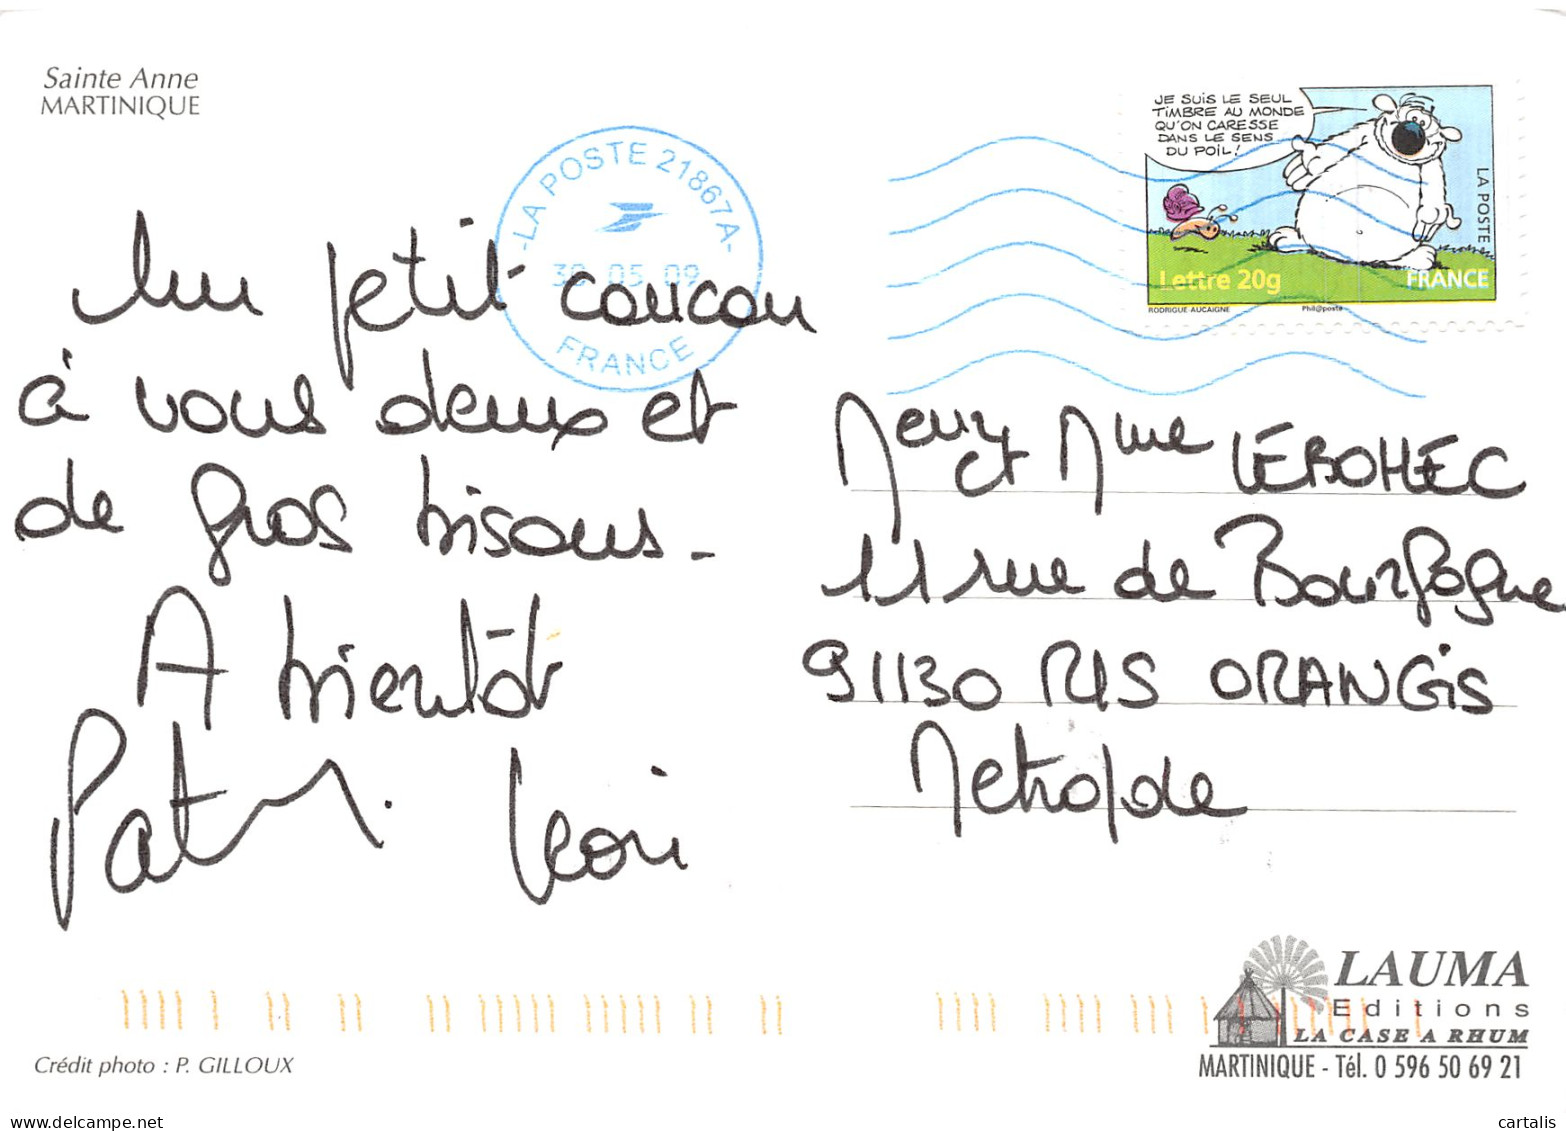 Sainte Anne
MARTINIQUE
LA POSTE 21867A
30 05 09
FRANCE
JE SUIS LE SEUL
TIMBRE AU MONDE
QU'ON CARESSE
DANS LE SENS
DU POIL!
LA POSTE
Lettre 20g FRANCE
RODRIGUE AUCAIGNE Phil@poste
Un petit coucou
à vous deux et
de gros bisous.
A bientôt
et Mme LEBOHEC
11 rue de Bourgogne
91130 RIS ORANGIS
Metropole
LAUMA
Editions
LA CASE A RHUM
MARTINIQUE - Tél. 0 596 50 69 21
Crédit photo : P. GILLOUX
delcampe.net
cartalis